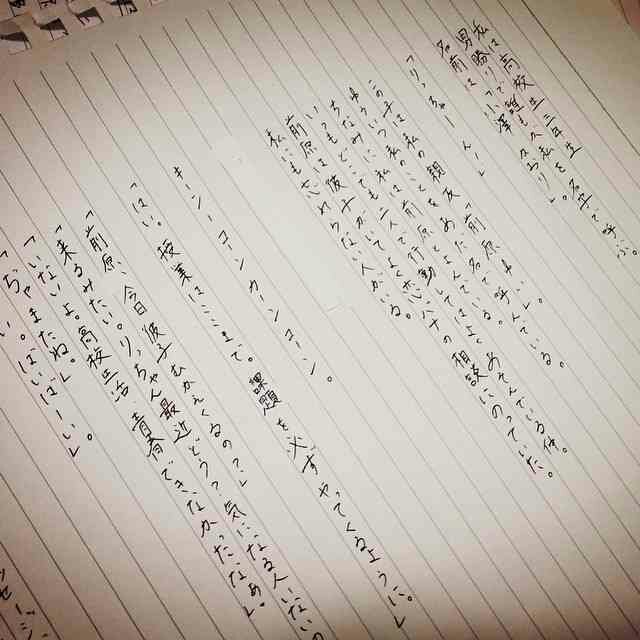 私は高校生三年生
男勝りで誰もが私を名字で呼ぶ。
名前は小澤
「りっちゃーん!」
この子は私の親友「前原
ゆういつ私のことをあだ名で呼んでいる。
ちなみに私は前原とよんでいる。
いつもどこでも二人で行動してはよくあそんでいる仲。
前原には彼士がいてよく恋バナの相談にのっていた。
私にも忘れられない人がいる。
キーンコーンカーンコーン。
「はい。授業はここまで。課題を必ずやってくるように。」
「前原、今日彼士むかえくるの?」
「来るみたい。りっちゃん最近どう?気になる人いないの
「いないよ。高校生活、青春できなかったなぁ。」
「またね。」
ばいばーい」